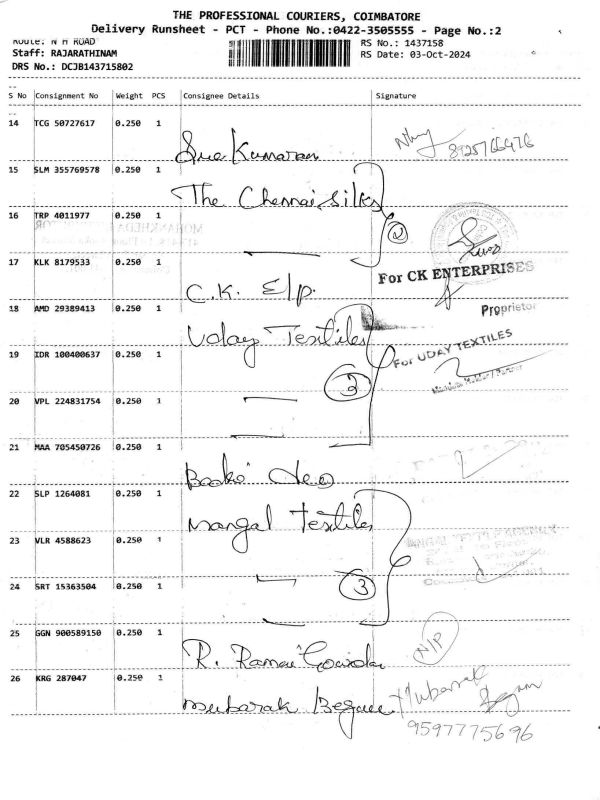 THE PROFESSIONAL COURIERS, COIMBATORE
Delivery Runsheet - PCT - Phone No.:0422-3505555 - Page No.:2
Route: N H ROAD
RS No.: 1437158
Staff: RAJARATHINAM
RS Date: 03-Oct-2024
DRS No.: DCJB143715802
S No Consignment No Weight PCS Consignee Details Signature
14 TCG 50727617 0.250 1
Sree Kumaran
8925766476
15 SLM 355769578 0.250 1
The Chennai silks
16 TRP 4011977 0.250 1
2
17 KLK 8179533 0.250 1
For CK ENTERPRISES
C.K. E/p.
Proprietor
18 AMD 29389413 0.250 1
Uday Textiles
For UDAY TEXTILES
19 IDR 100400637 0.250 1
3
20 VPL 224831754 0.250 1
21 MAA 705450726 0.250 1
22 SLP 1264081 0.250 1
Mangal Textiles
23 VLR 4588623 0.250 1
24 SRT 15363504 0.250 1
3
25 GGN 900589150 0.250 1
N/P
26 KRG 287047 0.250 1
Mubarak Begam
Mubarak Begam
9597775696